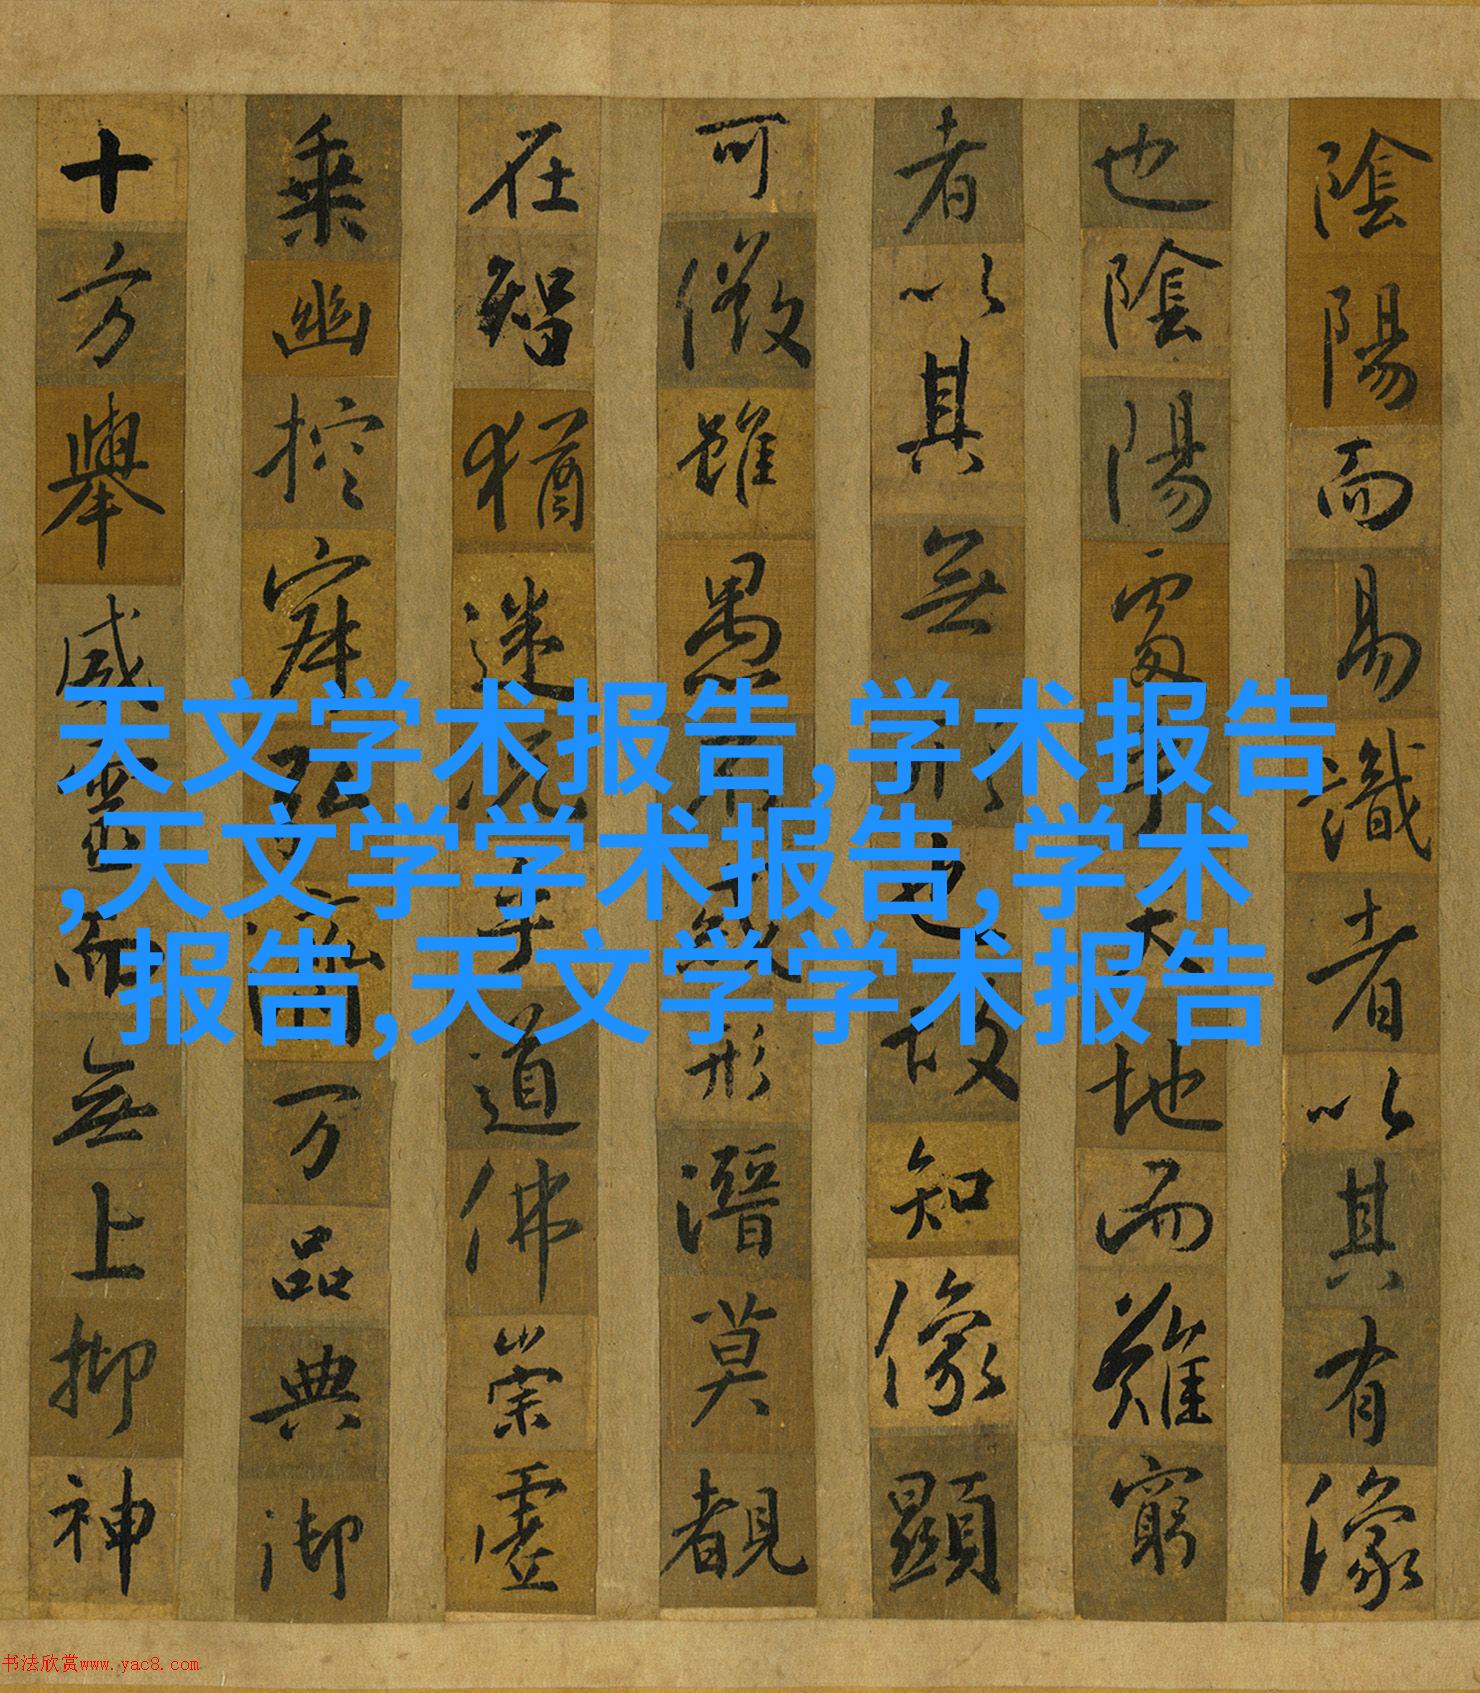 陰陽而易識者以其有像
也陰陽處乎天地而難窮
者以其無形也故知像顯
可徵雖愚不惑形潛莫覩
在智猶迷況乎道佛崇虛
乗幽控寂弘濟万品典御
十方舉威靈而無上抑神
天文学术报告,学术报告
,天文学学术报告,学术
报告,天文学学术报告
书法欣赏www.yac8.com